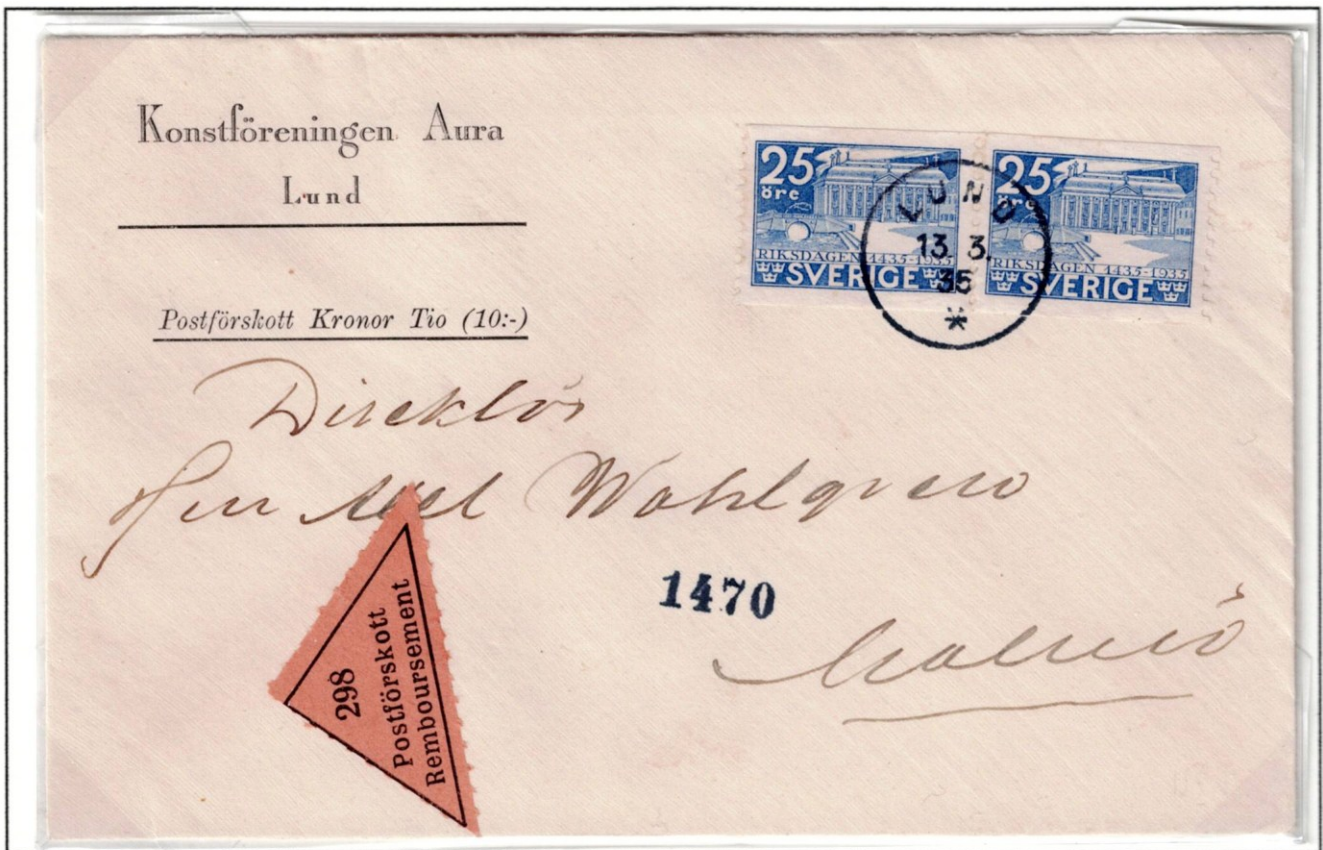 Konstföreningen Aura
Lund
Postförskott Kronor Tio (10:-)
25
öre
RIKSDAGEN 1435-1935
SVERIGE
25
öre
RIKSDAGEN 1435-1935
SVERIGE
LUND
13. 3.
35
*
Direktör
Herr Axel Wahlgren
1470
Malmö
298
Postförskott
Remboursement